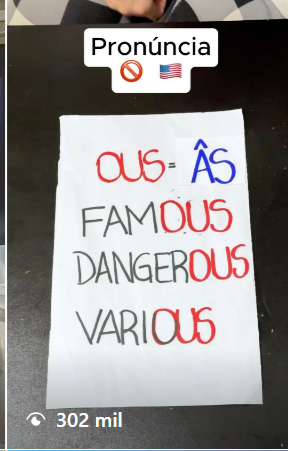 Pronúncia
OUS = ÂS
FAMOUS
DANGEROUS
VARIOUS
302 mil